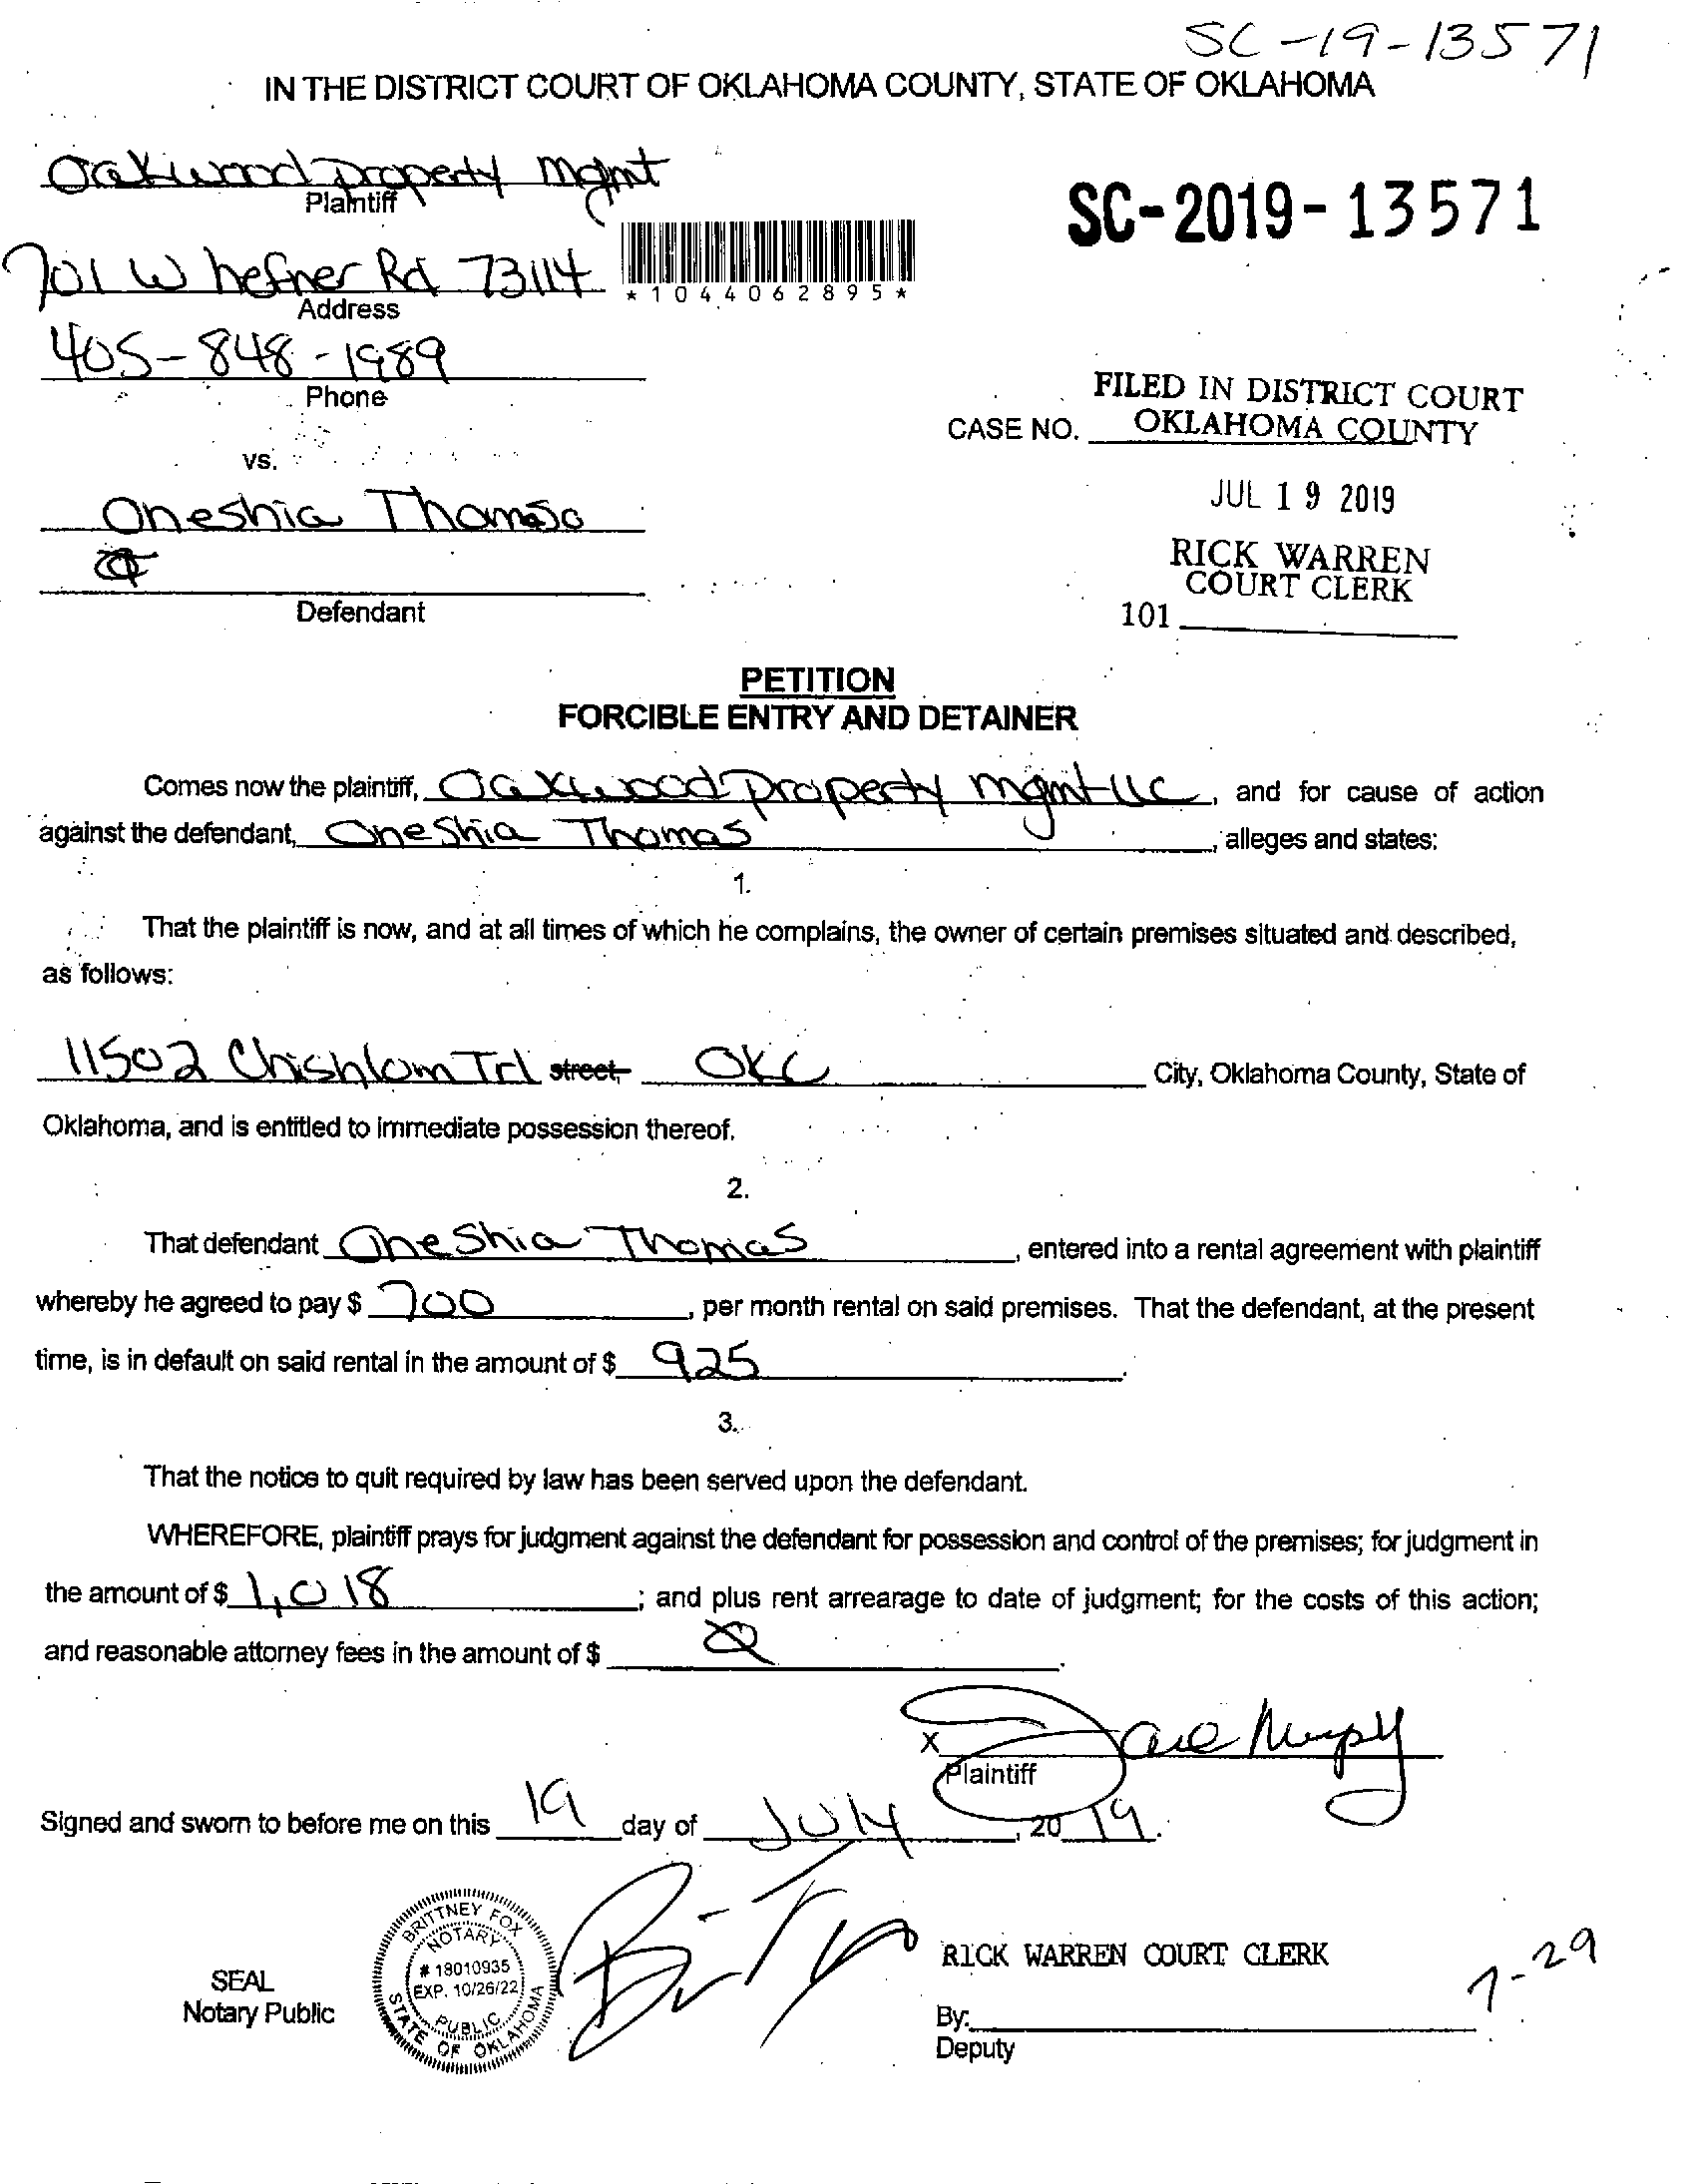 SC-19-13571
IN THE DISTRICT COURT OF OKLAHOMA COUNTY, STATE OF OKLAHOMA
Oakwood Property Mgmt
Plaintiff
SC-2019-13571
701 W hefner Rd 73114
*1044062895*
Address
405-848-1989
Phone
FILED IN DISTRICT COURT
CASE NO. OKLAHOMA COUNTY
vs.
JUL 19 2019
Oneshia Thomas
RICK WARREN
COURT CLERK
Defendant
101
PETITION
FORCIBLE ENTRY AND DETAINER
Comes now the plaintiff, Oakwood Property Mgmt LLC, and for cause of action
against the defendant, Oneshia Thomas, alleges and states:
1.
That the plaintiff is now, and at all times of which he complains, the owner of certain premises situated and described,
as follows:
11502 Chishlom Trl street, OKC City, Oklahoma County, State of
Oklahoma, and is entitled to immediate possession thereof.
2.
That defendant Oneshia Thomas, entered into a rental agreement with plaintiff
whereby he agreed to pay $ 700, per month rental on said premises. That the defendant, at the present
time, is in default on said rental in the amount of $ 925.
3.
That the notice to quit required by law has been served upon the defendant.
WHEREFORE, plaintiff prays for judgment against the defendant for possession and control of the premises; for judgment in
the amount of $ 1,018; and plus rent arrearage to date of judgment; for the costs of this action;
and reasonable attorney fees in the amount of $ .
X
Plaintiff
Signed and sworn to before me on this 19 day of July, 2019.
BRITTNEY FOX
NOTARY
# 18010935
EXP. 10/26/22
PUBLIC
STATE OF OKLAHOMA
SEAL
Notary Public
RICK WARREN COURT CLERK
7-29
By:
Deputy